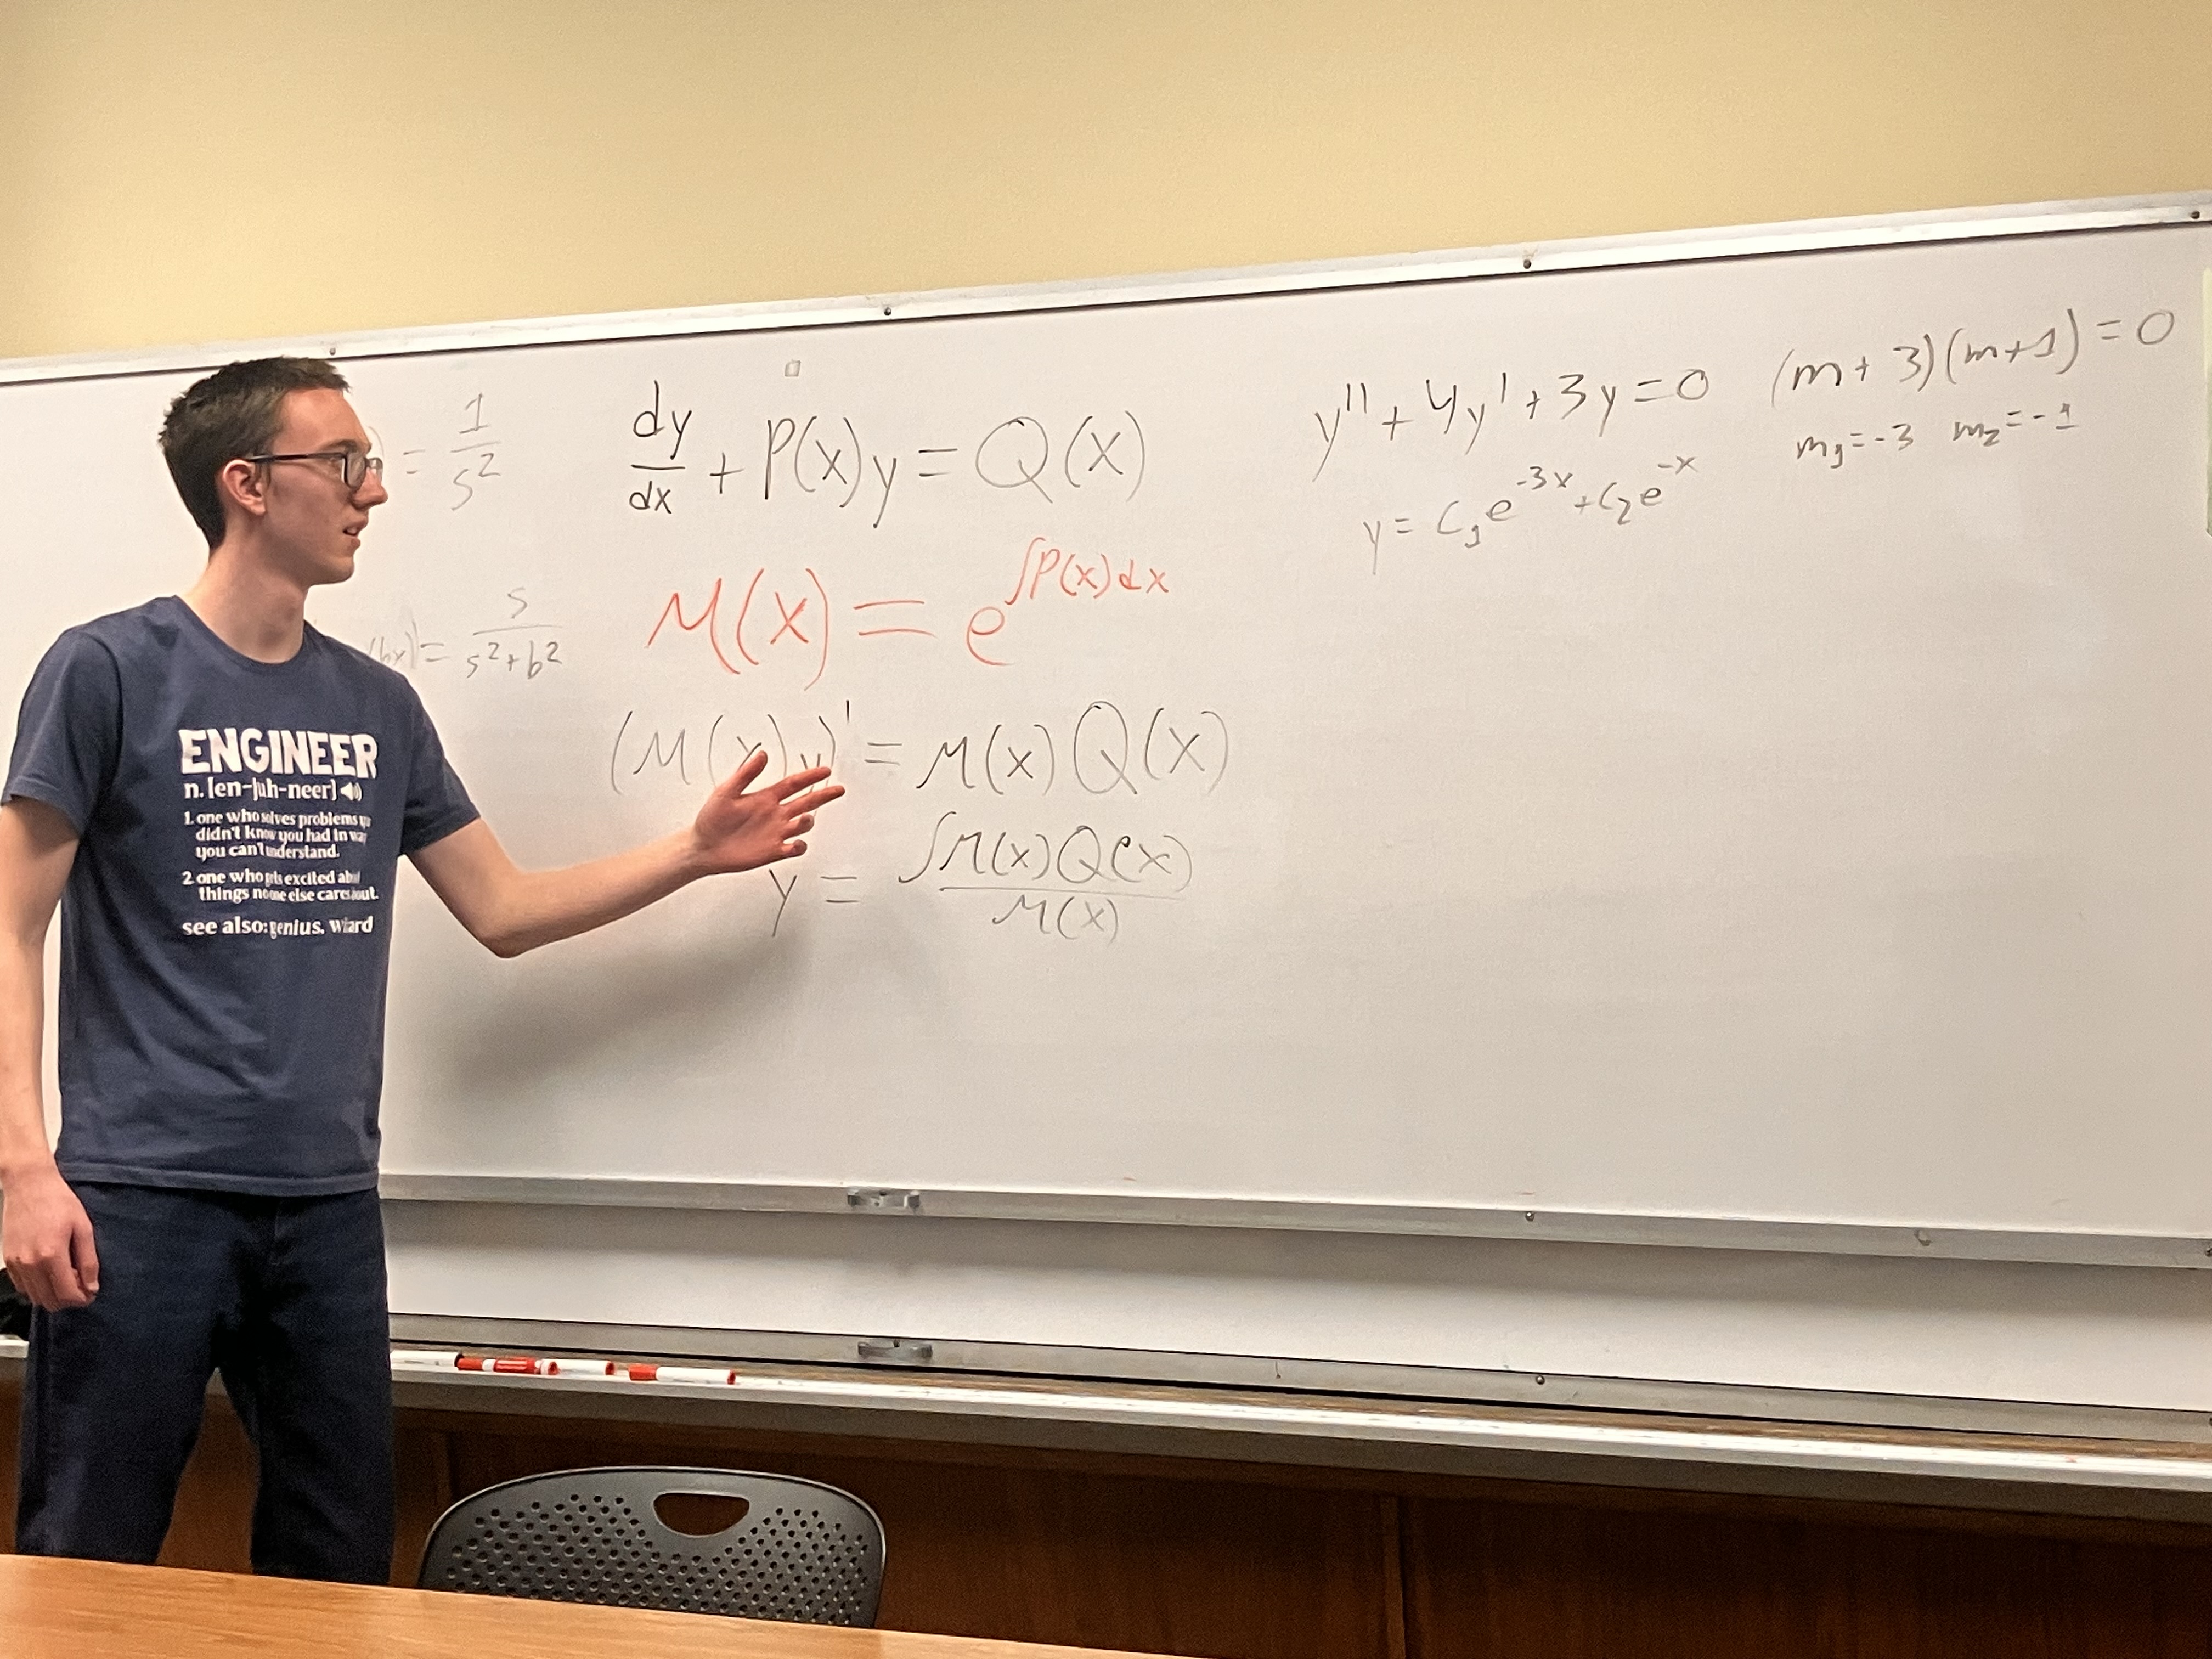 = 1/s²
(bx) = s/(s²+b²)
dy/dx + P(x)y = Q(x)
μ(x) = e^∫P(x)dx
(μ(x)y)' = μ(x)Q(x)
y = ∫μ(x)Q(x)/μ(x)
y'' + 4y' + 3y = 0
(m+3)(m+1) = 0
m₁=-3 m₂=-1
y = C₁e^-3x + C₂e^-x
ENGINEER
n. [en-juh-neer]
1. one who solves problems you
didn't know you had in way
you can't understand.
2. one who gets excited about
things no one else cares about.
see also: genius, wizard